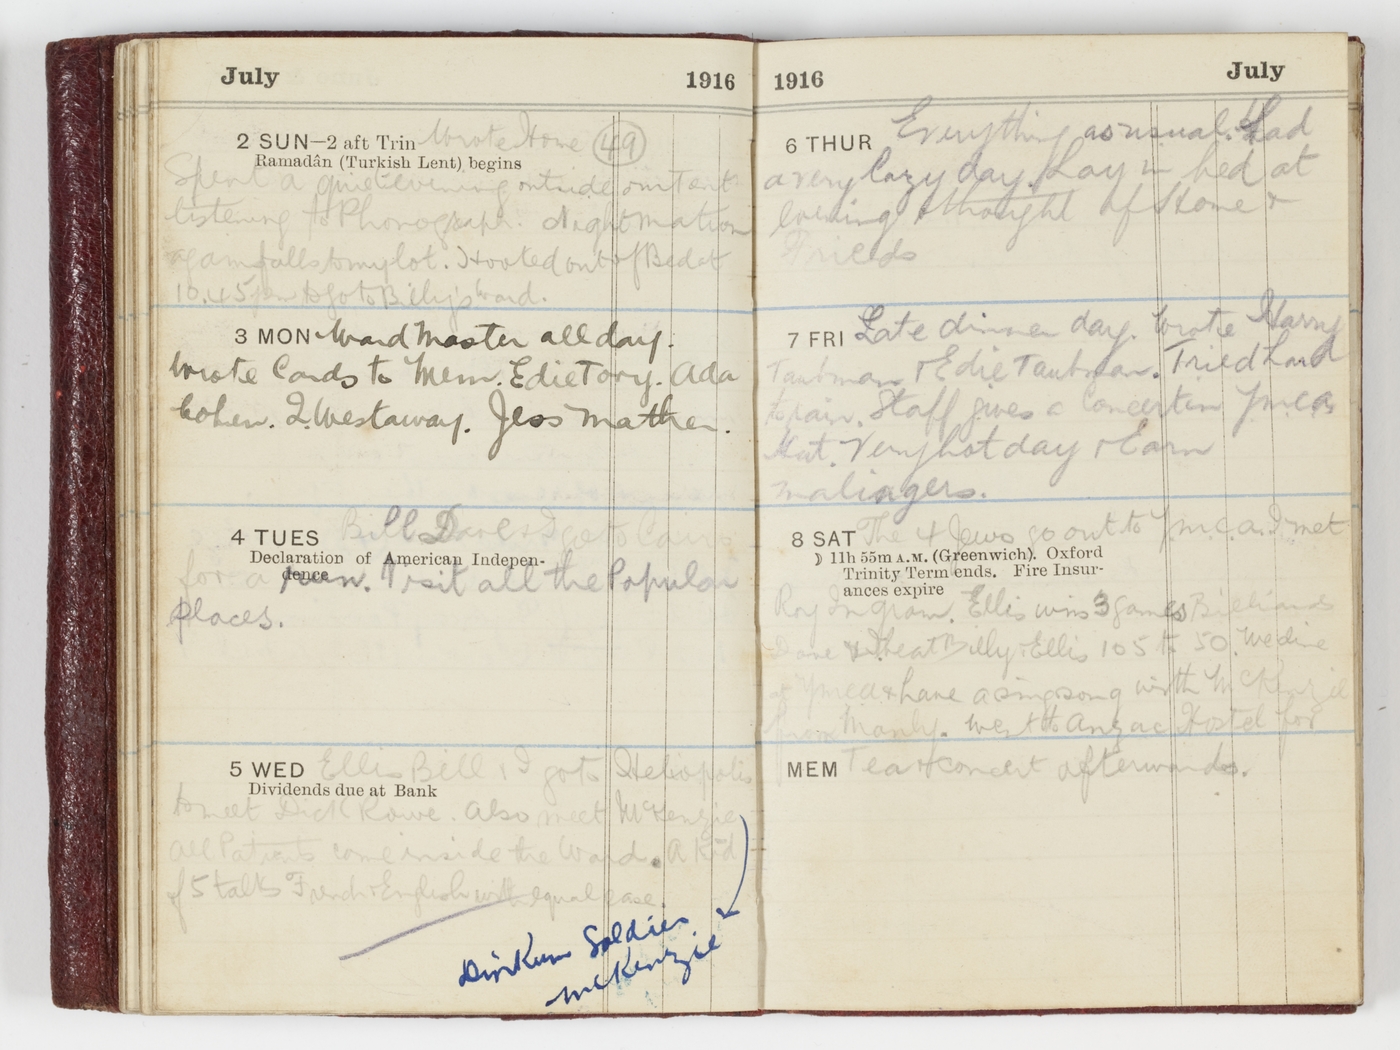 July 1916
2 SUN—2 aft Trin Wrote Home (49)
Ramadân (Turkish Lent) begins
Spent a quiet evening outside our Tent
listening to Phonograph. Night mation
again falls to my lot. Hooted out of Bed at
10.45 pm to go to Billy's Ward.
3 MON Ward Master all day.
Wrote Cards to Mem. Edie Tory. Ada
Cohen. I. Westaway. Jess Mather.
4 TUES Bill Dave & I go to Cairo
Declaration of American Indepen-
dence
for a run. Visit all the Popular
places.
5 WED Ellis Bill & I go to Heliopolis
Dividends due at Bank
to meet Dick Rowe. Also meet McKenzie
All Patients come inside the Ward. A Kid
of 5 talks French & English with equal ease.
Dinkum Soldier
McKenzie
1916 July
6 THUR Everything as usual. Had
a very lazy day. Lay in bed at
evening & thought of Home &
Frieds
7 FRI Late dinner day. Wrote Harry
Taubman & Edie Taubman. Tried hard
to pain. Staff gives a Concert in Ymca
Hut. Very hot day & Earn
malingers.
8 SAT The 4 Jews go out to Ymca. I met
☽ 11h 55m A.M. (Greenwich). Oxford
Trinity Term ends. Fire Insur-
ances expire
Roy Ingram. Ellis wins 3 games Billiards
Dave & I beat Billy & Ellis 105 to 50. We dine
at Ymca & have a singsong with McKenzie
from Manly. Went to Anzac Hostel for
MEM Tea & concert afterwards.